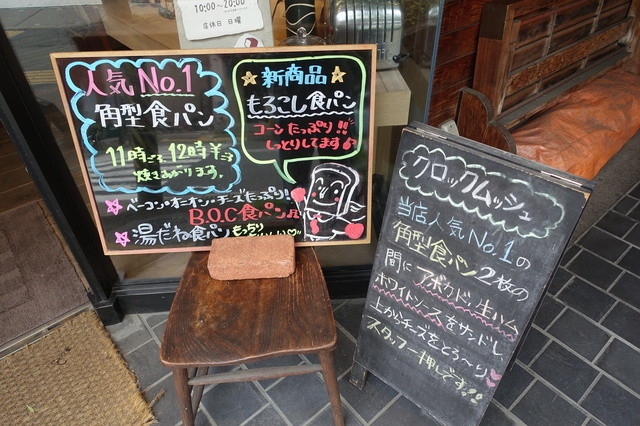 10:00～20:00
店休日 日曜
人気No.1
角型食パン
11時ごろ 12時半ごろ
焼きあがります。
☆新商品☆
もろこし食パン
コーンたっぷり!!
しっとりしてます♪
☆ベーコン・オニオン・チーズたっぷり!!
B.O.C食パン
☆湯だね食パン もっちり
クロックムッシュ
当店人気No.1の
角型食パン2枚の
間にアボカド、生ハム
ホワイトソースをサンドし
上からチーズをとろ～り♥
スタッフ一押しです!!